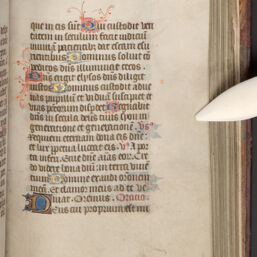 que in eis sunt Qui custodit veri
tatem in seculum facit iudicium
iniuriam pacientibus dat escam esu
rientibus Dominus soluit co
peditos dominus illuminat cecos
Dominus erigit elisos dominus diligit
iustos Dominus custodit adue
nas pupillum et viduam suscipiet et
vias peccatorum disperdet Regnabit
dominus in secula deus tuus syon in
generatione et generacionem
Requiem eternam dona eis domine
et lux perpetua luceat eis A por
ta inferi Erue domine animas eorum Cre
do videre bona domini in terra viuen
tium Domine exaudi orationem
meam Et clamor meus ad te ve
niat Oremus Oratio
Deus cui proprium est mi